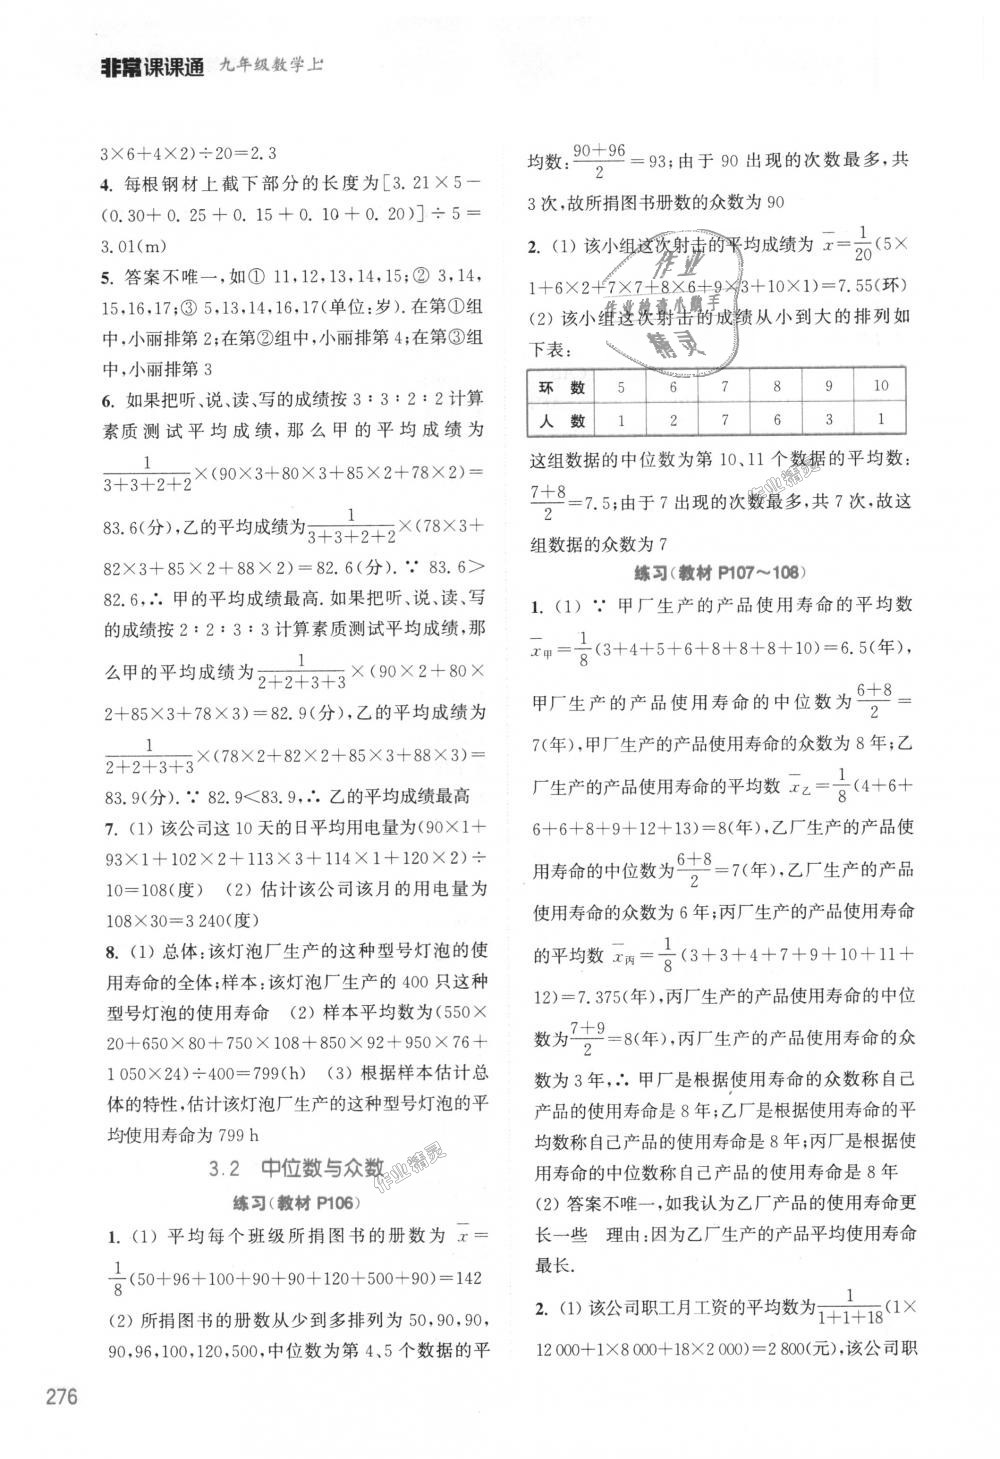 非常课课通 九年级数学上
3×6+4×2)÷20=2.3
4. 每根钢材上截下部分的长度为[3.21×5-
(0.30+0.25+0.15+0.10+0.20)]÷5=
3.01(m)
5. 答案不唯一,如① 11,12,13,14,15;② 3,14,
15,16,17;③ 5,13,14,16,17(单位:岁).在第①组
中,小丽排第2;在第②组中,小丽排第4;在第③组
中,小丽排第3
6. 如果把听、说、读、写的成绩按3∶3∶2∶2计算
素质测试平均成绩,那么甲的平均成绩为
1/(3+3+2+2)×(90×3+80×3+85×2+78×2)=
83.6(分),乙的平均成绩为1/(3+3+2+2)×(78×3+
82×3+85×2+88×2)=82.6(分).∵ 83.6>
82.6,∴ 甲的平均成绩最高.如果把听、说、读、写
的成绩按2∶2∶3∶3计算素质测试平均成绩,那
么甲的平均成绩为1/(2+2+3+3)×(90×2+80×
2+85×3+78×3)=82.9(分),乙的平均成绩为
1/(2+2+3+3)×(78×2+82×2+85×3+88×3)=
83.9(分).∵ 82.9<83.9,∴ 乙的平均成绩最高
7. (1) 该公司这10天的日平均用电量为(90×1+
93×1+102×2+113×3+114×1+120×2)÷
10=108(度) (2) 估计该公司该月的用电量为
108×30=3 240(度)
8. (1) 总体:该灯泡厂生产的这种型号灯泡的使
用寿命的全体;样本:该灯泡厂生产的400只这种
型号灯泡的使用寿命 (2) 样本平均数为(550×
20+650×80+750×108+850×92+950×76+
1 050×24)÷400=799(h) (3) 根据样本估计总
体的特性,估计该灯泡厂生产的这种型号灯泡的平
均使用寿命为799 h
3.2 中位数与众数
练习(教材 P106)
1. (1) 平均每个班级所捐图书的册数为 x̄=
1/8(50+96+100+90+90+120+500+90)=142
(2) 所捐图书的册数从少到多排列为50,90,90,
90,96,100,120,500,中位数为第4、5个数据的平
276
均数:(90+96)/2=93;由于90出现的次数最多,共
3次,故所捐图书册数的众数为90
2. (1) 该小组这次射击的平均成绩为 x̄=1/20(5×
1+6×2+7×7+8×6+9×3+10×1)=7.55(环)
(2) 该小组这次射击的成绩从小到大的排列如
下表:
环 数 5 6 7 8 9 10
人 数 1 2 7 6 3 1
这组数据的中位数为第10、11个数据的平均数:
(7+8)/2=7.5;由于7出现的次数最多,共7次,故这
组数据的众数为7
练习(教材 P107~108)
1. (1) ∵ 甲厂生产的产品使用寿命的平均数
x̄甲=1/8(3+4+5+6+8+8+8+10)=6.5(年),
甲厂生产的产品使用寿命的中位数为(6+8)/2=
7(年),甲厂生产的产品使用寿命的众数为8年;乙
厂生产的产品使用寿命的平均数 x̄乙=1/8(4+6+
6+6+8+9+12+13)=8(年),乙厂生产的产品使
用寿命的中位数为(6+8)/2=7(年),乙厂生产的产品
使用寿命的众数为6年;丙厂生产的产品使用寿命
的平均数 x̄丙=1/8(3+3+4+7+9+10+11+
12)=7.375(年),丙厂生产的产品使用寿命的中位
数为(7+9)/2=8(年),丙厂生产的产品使用寿命的众
数为3年,∴ 甲厂是根据使用寿命的众数称自己
产品的使用寿命是8年;乙厂是根据使用寿命的平
均数称自己产品的使用寿命是8年;丙厂是根据使
用寿命的中位数称自己产品的使用寿命是8年
(2) 答案不唯一,如我认为乙厂产品的使用寿命更
长一些 理由:因为乙厂生产的产品平均使用寿命
最长.
2. (1) 该公司职工月工资的平均数为1/(1+1+18)(1×
12 000+1×8 000+18×2 000)=2 800(元),该公司职
作业
作业检查小助手
精灵
作业精灵
作业精灵